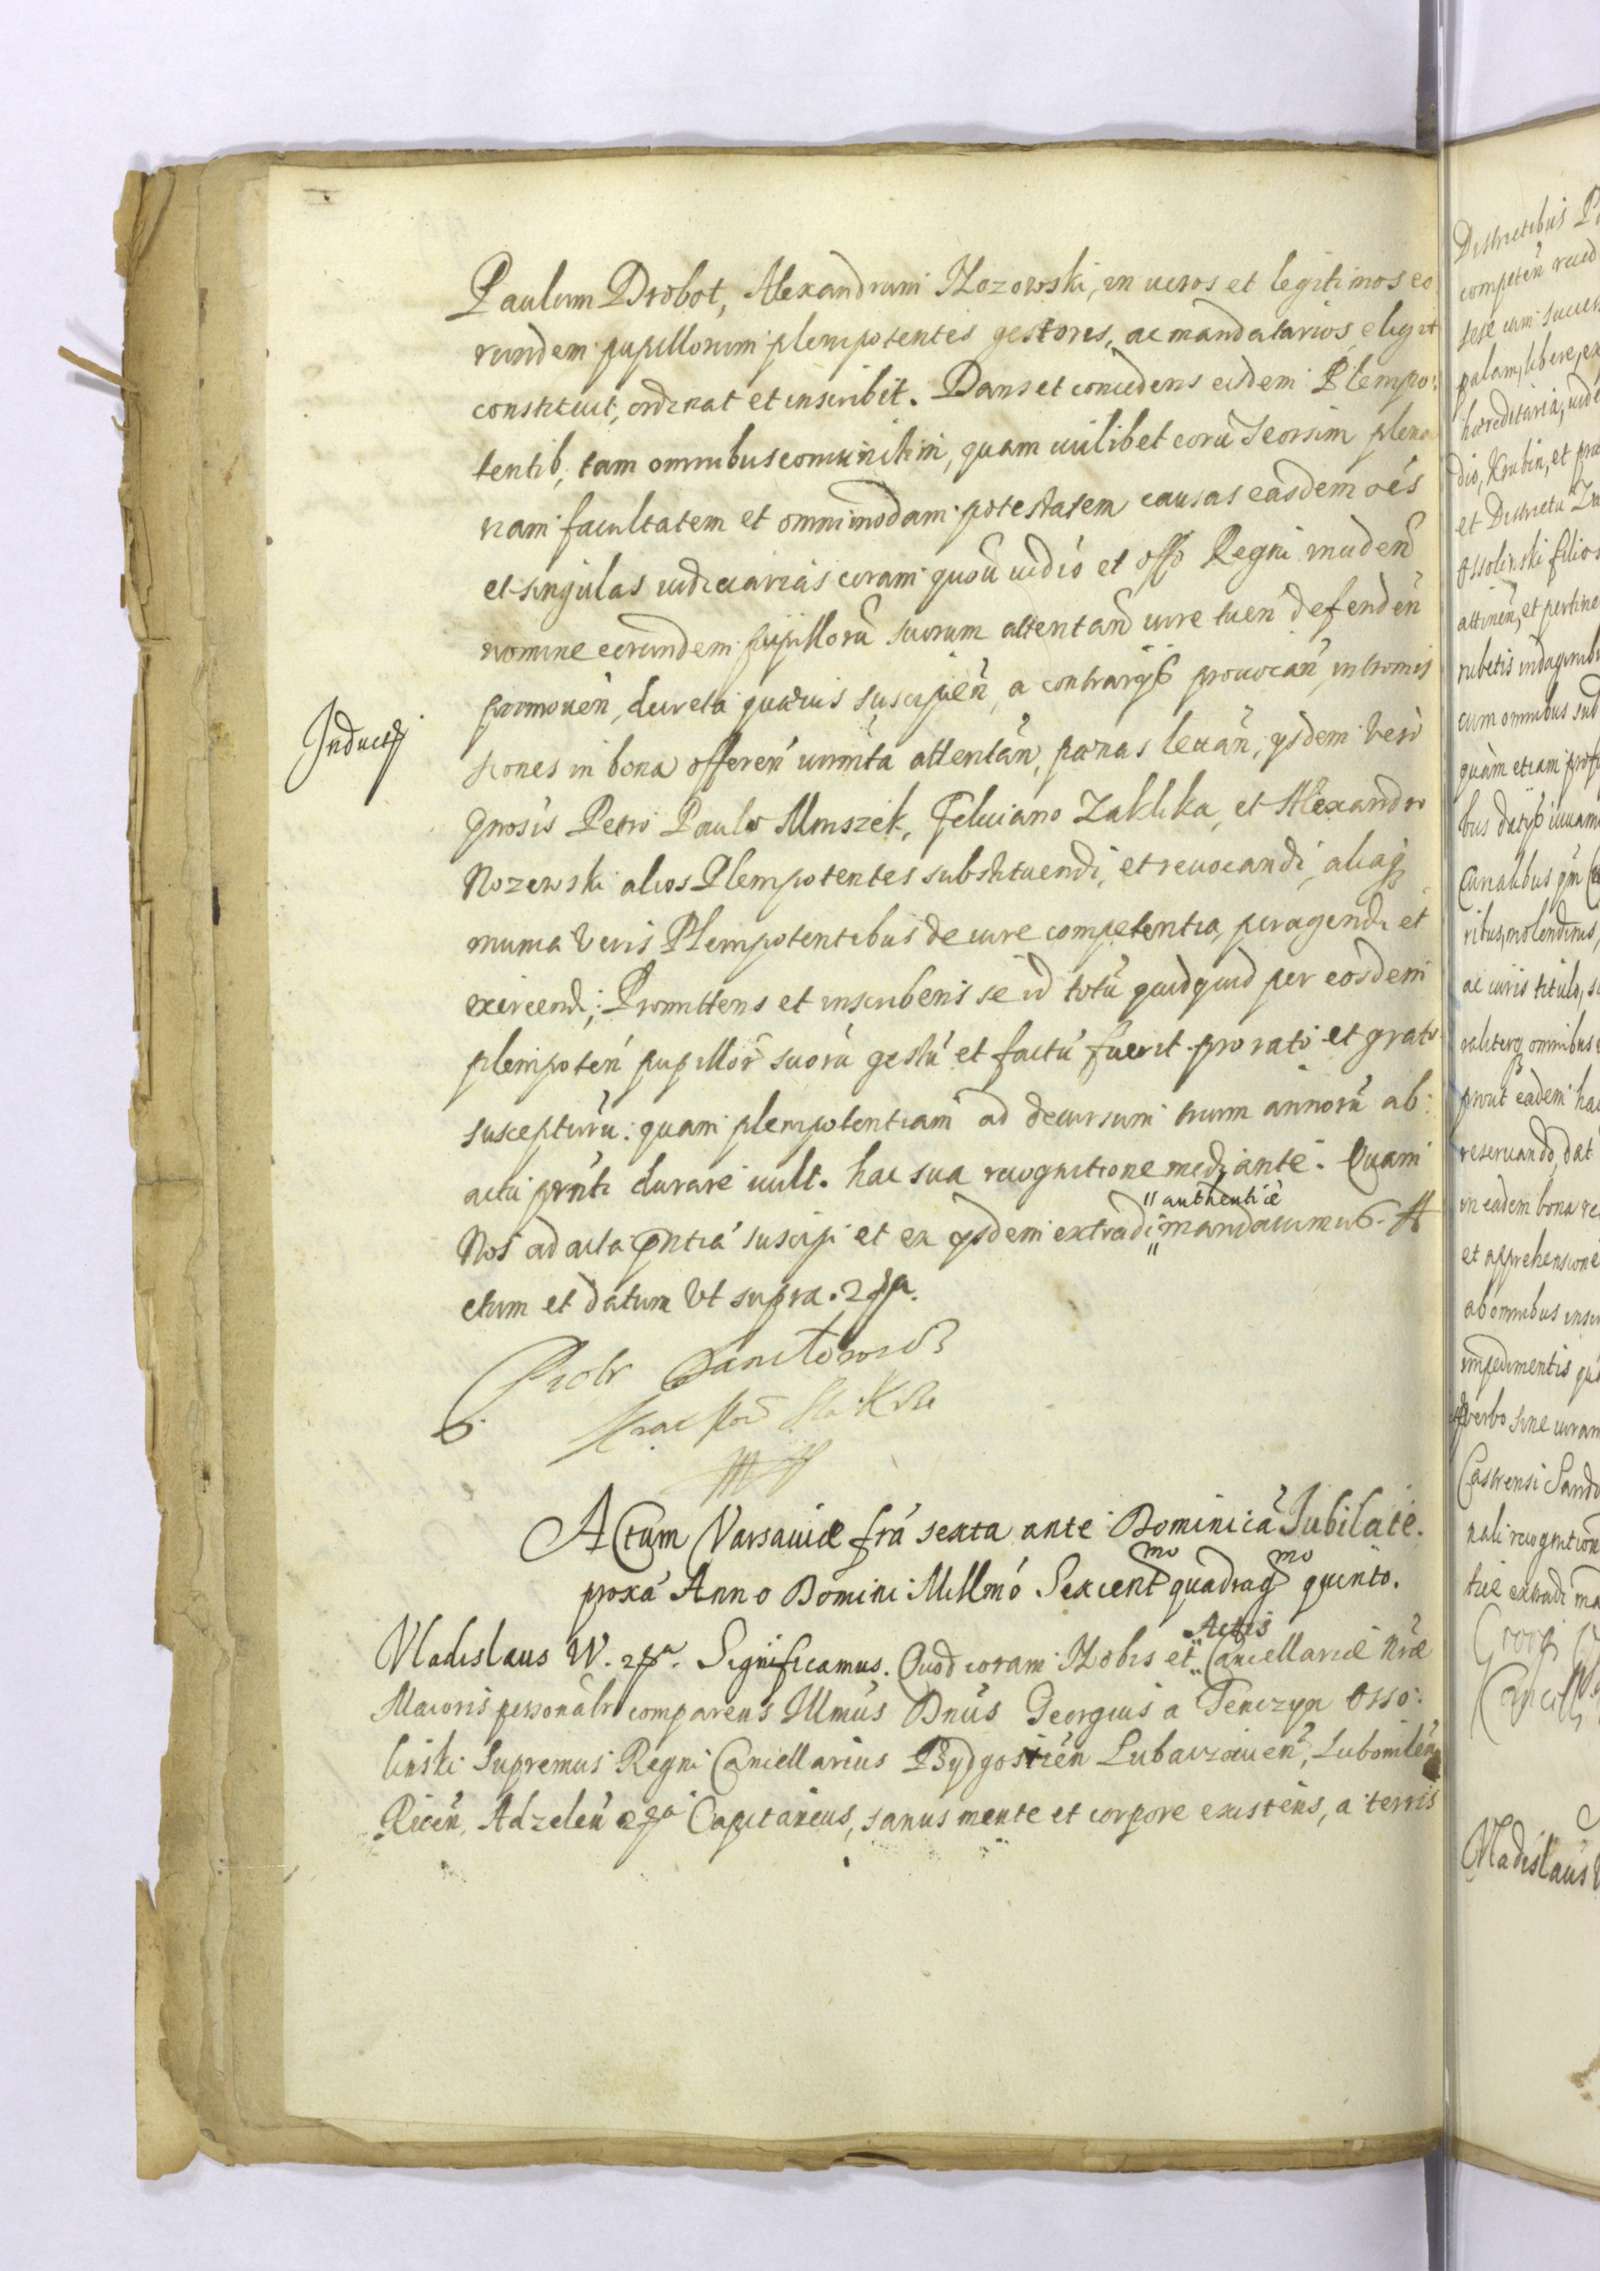 Paulum Drobot, Alexandrum Nozowski, in veros et legitimos eo
rundem pupillorum plenipotentes gestores, ac mandatarios eligit
constituit, ordinat et inscribit. Dans et concedens eisdem Plenipo:
tentib, tam omnibus comunitim, quam cuilibet eorũ seorsim plena
riam facultatem et omnimodam potestatem causas easdem oẽs
et singulas iudiciarias coram quouĩ iudiõ et offõ Regni
nomine eorundem pupillorũ suorum attentand iure tuen defendeñ
promoueñ, decreta quæuis suscipieñ, a contrarijs prouocañ, intromis
siones in bona offereñ attentañ, pænas lucrañ, ijsdem verò
Gnosis Petro Paulo Mniszek, Feliciano Zaklika, et Alexandro
Nozewski alios Plenipotentes substituendi, et reuocandi, aliaq
munia veris Plenipotentibus de iure competentia, peragendi et
exercendi; Promittens et inscribens se id totũ quidquid per eosdem
plenipoteñ pupillor suorũ gestũ et factũ fuerit pro rato et grato
suscepturũ. quam plenipotentiam ad decursum trium annorũ ab
actu prñti durare uult. hac sua recognitione mediante. Quam
Nos ad acta pñtia suscipi et ex ijsdem extradi " authentice mandauimus. A
ctum et datum Vt supra.
Piotr
Actum Varsauiæ frã sexta ante Dominicã Jubilate
proxã Anno Domini Millmõ Sexcentmo quadragmo quinto.
Vladislaus IV. Significamus. Quod coram Nobis et Actis Cancellariæ Nræ
Maioris personalr comparens Illmus Dnus Georgius a Tenczyn Osso:
linski Supremus Regni Cancellarius Bydgostieñ Lubaczouieñ, Lubomleñ
Riceñ, Adzeleñ Capitaneus, sanus mente et corpore existens, a terris
Districtibus
competeñ
sese cum
palam, libere, ex
hæreditaria,
dio, Krubin, et
et Districtu
Ossolinski filios
attineñ, et pertine
rubetis indaginib
cum omnibus sub
quàm etiam prof
ribus, molendinis,
ac iuris titulo,
raliterq omnibus
prout eadem
reseruando, dat
in eadem bona re
et apprehensione
ab omnibus inscr
impedimentis
verbo sine
Castrensi Sando
nali recognition
tice extradi ma
Vladislaus